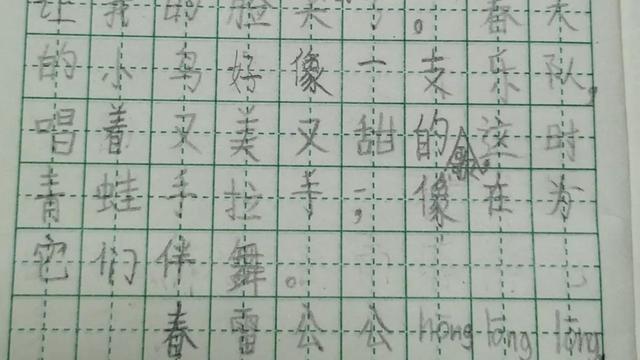 让我的脸来了。春天
的小鸟好像一支乐队,
唱着又美又甜的歌。这时
青蛙手拉手,像在为
它们伴舞。
春雷公公hōng lōng lōng